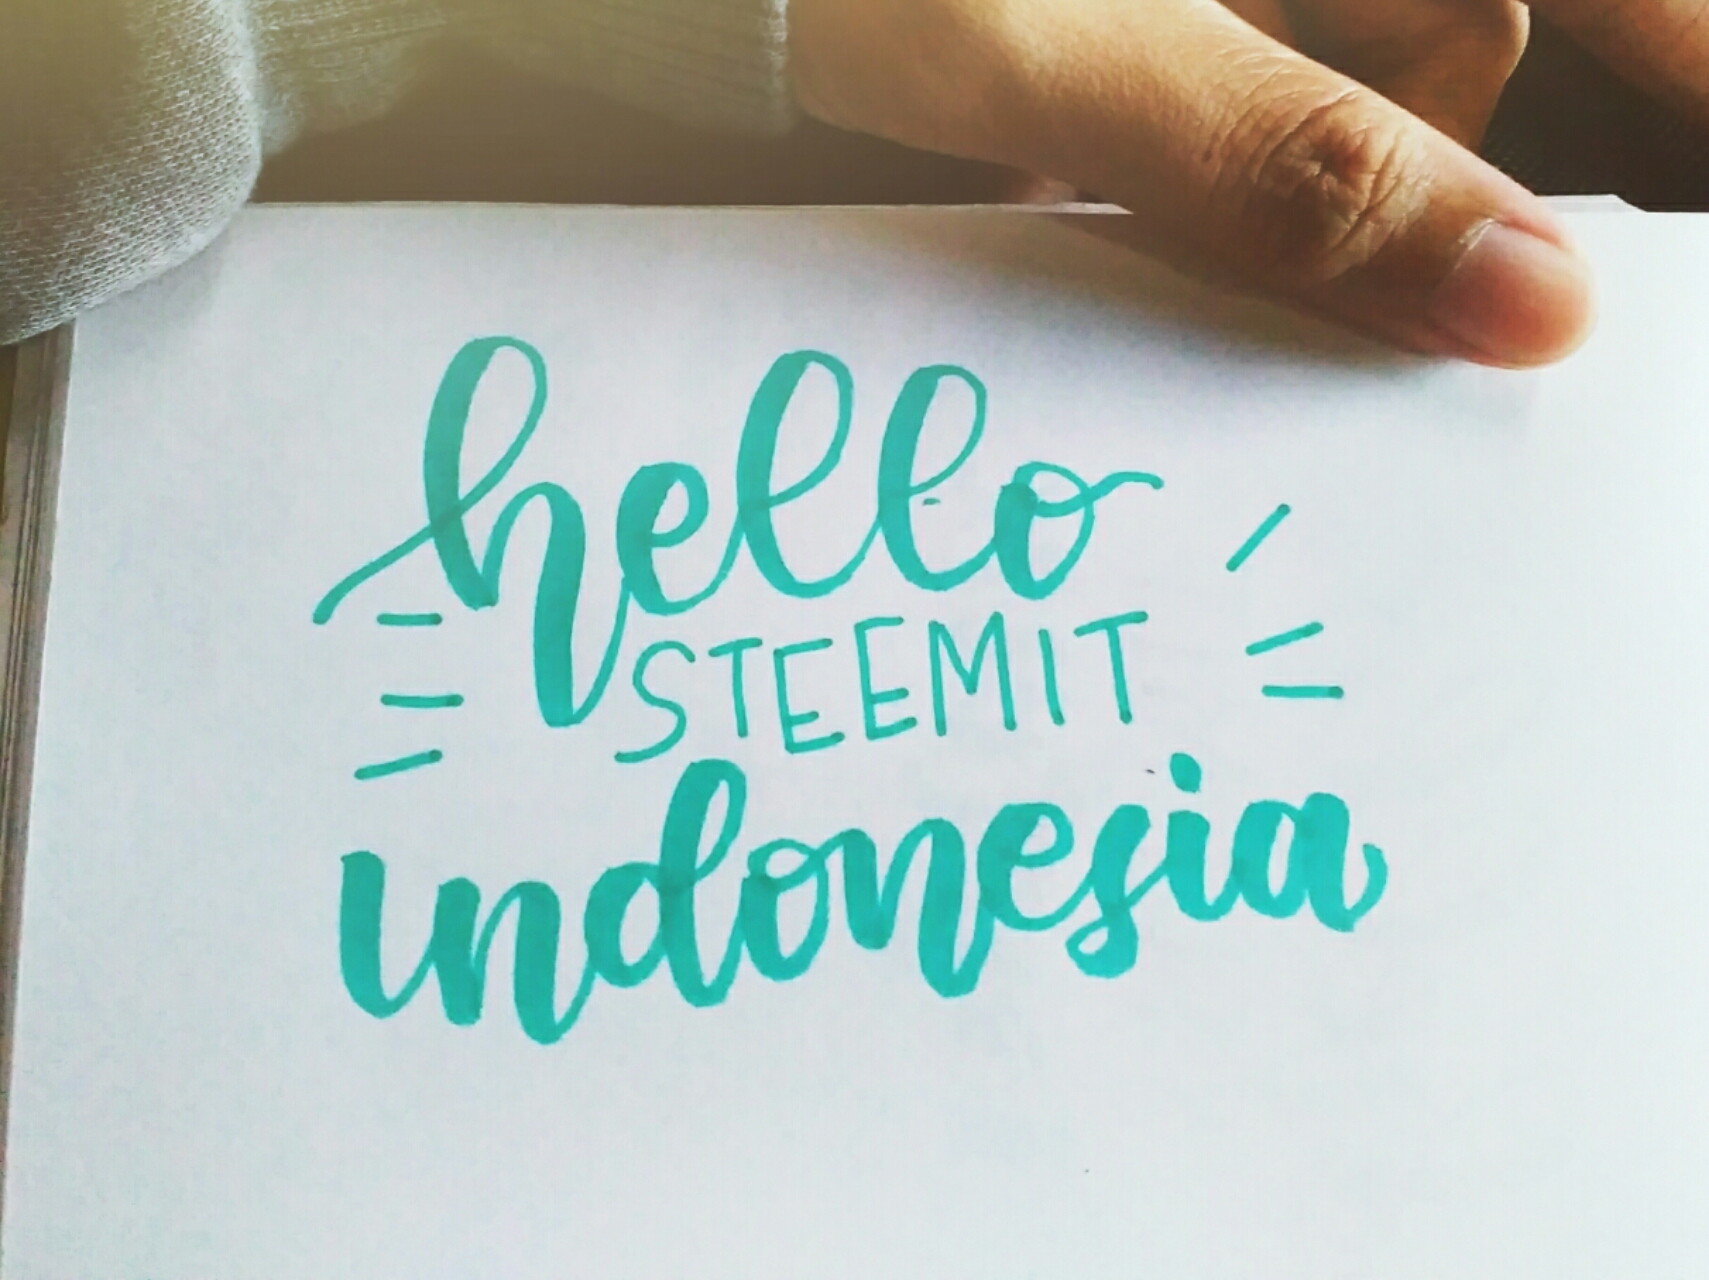 hello
STEEMIT
indonesia